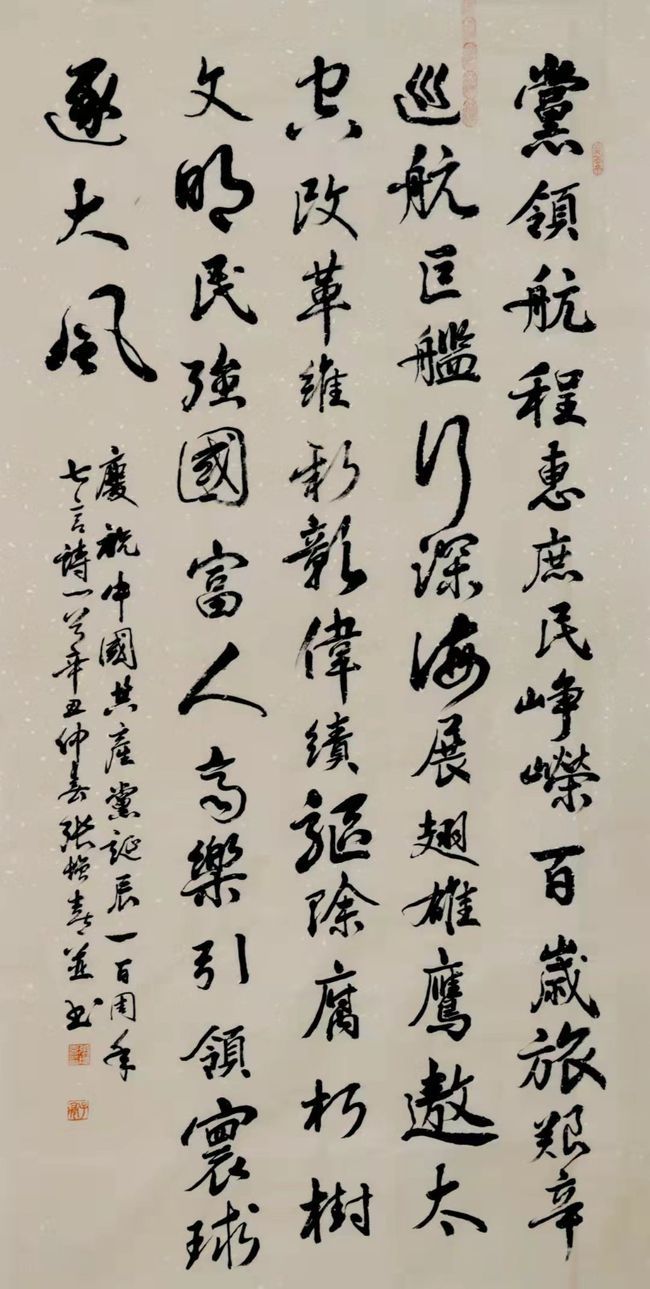 黨領航程惠庶民崢嶸百歲旅艱辛
巡航巨艦行深海展翅雄鷹遨太
空改革維新彰偉績驅除腐朽樹
文明民強國富人高樂引領寰球
逐大風
慶祝中國共産黨誕辰一百周年
七言詩一首辛丑仲春張喜並书